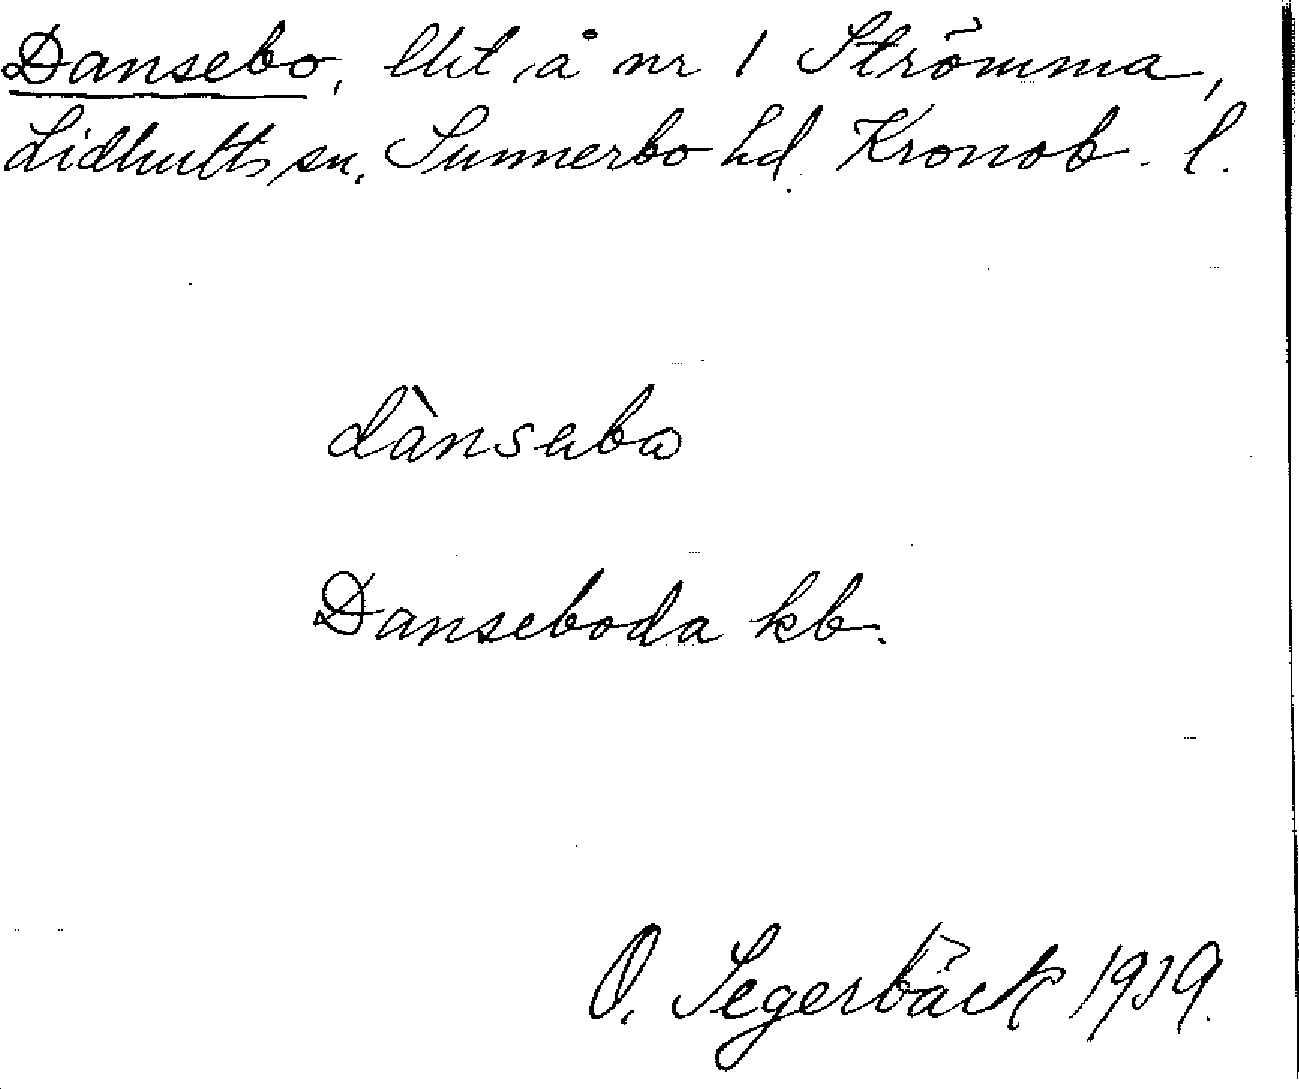 Dansebo, lht å nr 1 Strömma,
Lidhults sn, Sunnerbo hd. Kronob. l.
dànsabo
Danseboda kb.
O. Segerbäck 1919.